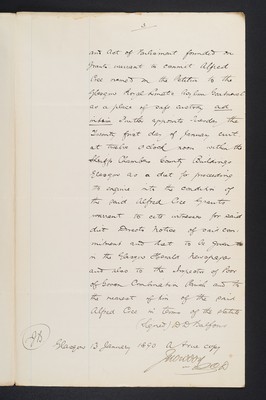 3
and Act of Parliament founded on
Grants warrant to commit Alfred
Coe named in the Petition to the
Glasgow Royal Lunatic Asylum Gartnavel
as a place of safe custody ad
interim Further appoints Tuesday the
Twenty first day of January curt
at twelve o'clock noon within the
Sheriffs Chambers County Buildings
Glasgow as a diet for proceeding
to enquire into the condition of
the said Alfred Coe Grants
warrant to cite witnesses for said
diet Directs notice of said com-
mitment and diet to be given
in the Glasgow Herald newspaper
and also to the Inspector of Poor
of Govan Combination Parish and to
the nearest of kin of the said
Alfred Coe in terms of the statute
(Signed) D. D. Balfour
Glasgow 13 January 1890 A true copy